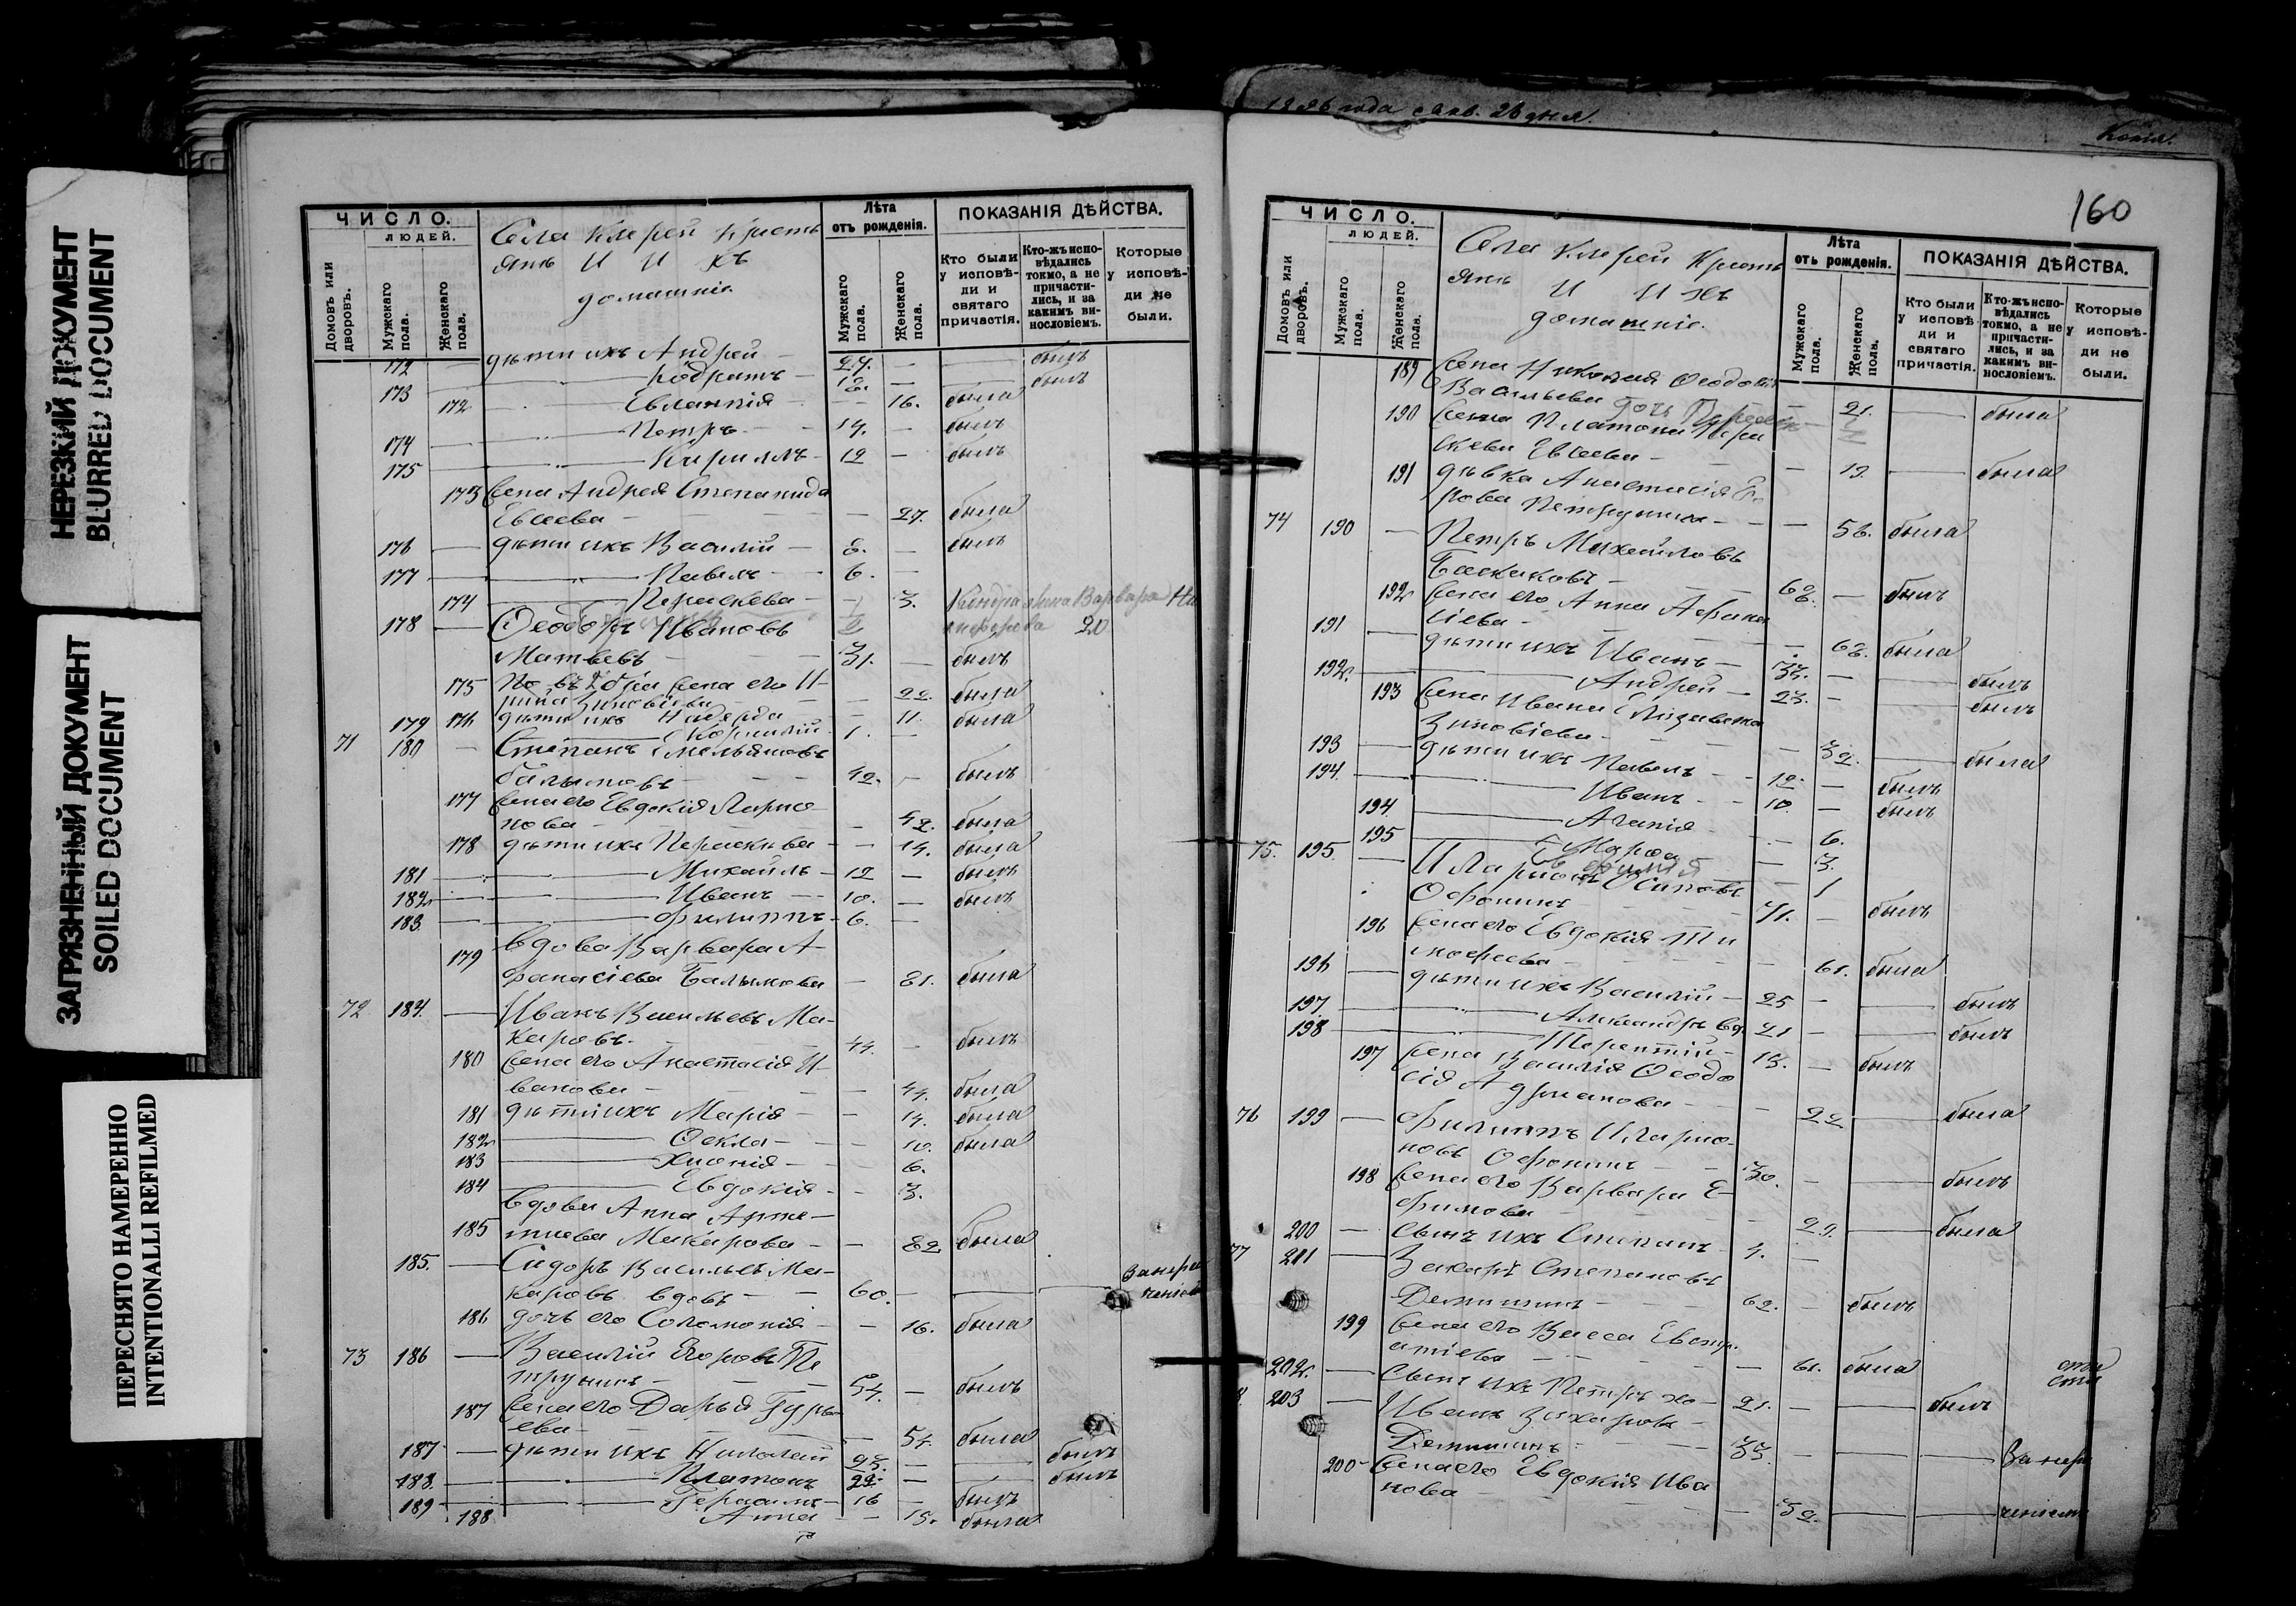 НЕРЕЗКИЙ ДОКУМЕНТ
BLURRED DOCUMENT
ЗАГРЯЗНЕННЫЙ ДОКУМЕНТ
SOILED DOCUMENT
ПЕРЕСНЯТО НАМЕРЕННО
INTENTIONALLI REFILMED
ЧИСЛО.
ЛЮДЕЙ.
Домовъ или дворовъ.
Мужскаго пола.
Женскаго пола.
Села Ключей Кресть
янъ и ихъ
домашніе
Лѣта
отъ рожденія.
Мужскаго пола.
Женскаго пола.
ПОКАЗАНІЯ ДѢЙСТВА.
Кто были у исповѣди и святаго причастія.
Кто-жъ исповѣдались токмо, а не причастились, и за какимъ винословіемъ.
Которые у исповѣди не были.
172 — дѣти ихъ Андрей — 27. — — былъ
173 — Кодратъ — 18. — — былъ
172 — Евлампія — — 16. была
174 — Петръ — 14. — былъ
175 — Кириллъ — 12 — былъ
173 Жена Андрея Степанида
Евсеева — — 27. была
176 — дѣти ихъ Василій — 8. — былъ
177 — Павелъ — 6. —
174 — Параскева — — 3. Варвара
178 — Ѳеодоръ Ивановъ 20
Матвѣевъ — 31. — былъ
175 жена его И-
рина Зиновіева — — 22. была
176 дѣти ихъ Надежда — 11. была
179 Корнилій 1. —
71 180 — Степанъ Емельяновъ
Балыковъ — 42. — былъ
177 Жена его Евдокія Ларіо
нова — — 42. была
178 дѣти ихъ Параскева — — 14. была
181 — Михаилъ — 12 — былъ
182 — Иванъ — 10. — былъ
183. — Филиппъ — 6. —
179 Вдова Варвара А-
фанасіева Балыкова — 81. была
72 184. — Иванъ Васильевъ Ма-
каровъ. — 44. — былъ
180 Жена его Анастасія И-
ванова — — 44. была
181 дѣти ихъ Марія — — 14. была
182 — Ѳекла — — 10. была
183 — Хіонія — — 6.
184 — Евдокія — — 3.
Вдова Анна Арте-
185 міева Макарова — — 82. была
185. — Сидоръ Васильевъ Ма-
каровъ вдовъ — — 60. —
186 дочь его Соломонія — — 16. была
73 186 — Василій Егоровъ Пе
трунинъ — 54. — былъ
187 Жена его Дарья Гурь
ева — — 54. была
187 — дѣти ихъ Николай 25. — — былъ
188. — Платонъ 22. — — былъ
189 — Герасимъ — 16 — былъ
188 Анна — — 15. была
26 дня.
Копія.
160
ЧИСЛО.
ЛЮДЕЙ.
Домовъ или дворовъ.
Мужскаго пола.
Женскаго пола.
Села Ключей Кресть
янъ и ихъ
домашніе.
Лѣта
отъ рожденія.
Мужскаго пола.
Женскаго пола.
ПОКАЗАНІЯ ДѢЙСТВА.
Кто были у исповѣди и святаго причастія.
Кто-жъ исповѣдались токмо, а не причастились, и за какимъ винословіемъ.
Которые у исповѣди не были.
189 Жена Николая Ѳеодосія
Васильева — 21. — была
190 Жена Платона Пара
скева Евсеева — — 19. — была
191 дѣвка Анастасія
Петрунина — — 58. была
74 190 — Петръ Михайловъ
Баскаковъ — 68. — былъ
192 Жена его Анна Афана
сіева — — 68. была
191 — дѣти ихъ Иванъ — 33. — — былъ
192. — Андрей — 23. — — былъ
193 Жена Ивана Елизавета
Зиновіева — — 32. — была
193 — дѣти ихъ Павелъ — 12 — былъ
194. — Иванъ — 10. — былъ
194. — Агапія — — 6.
195 — Марѳа — 3.
75. 195. — Иларіонъ Осиповъ
Офонинъ — 71. — былъ
196 Жена его Евдокія Ти
моѳеева — — 61. была
196 — дѣти ихъ Василій — 25 — — былъ
197. — Александръ 21 — — былъ
198 — Терентій — 15. — былъ
197 Жена Василія Ѳеодо
сія Адріанова — — 22 — была
76 199 — Филиппъ Иларіо-
новъ Офонинъ — 30. — — былъ
198 Жена его Варвара Е-
фимова — 29. — была
200 — Сынъ ихъ Степанъ — 4. —
77 201 — Захаръ Степановъ
Демшинъ — 62. — былъ
199 Жена его Васса Евстр-
атіева — — 61. была
202. — Сынъ ихъ Петръ 21. — — былъ
203 — Иванъ Захаровъ
Демшинъ — 35. —
200 — Жена его Евдокія Ива
нова — — 32. —